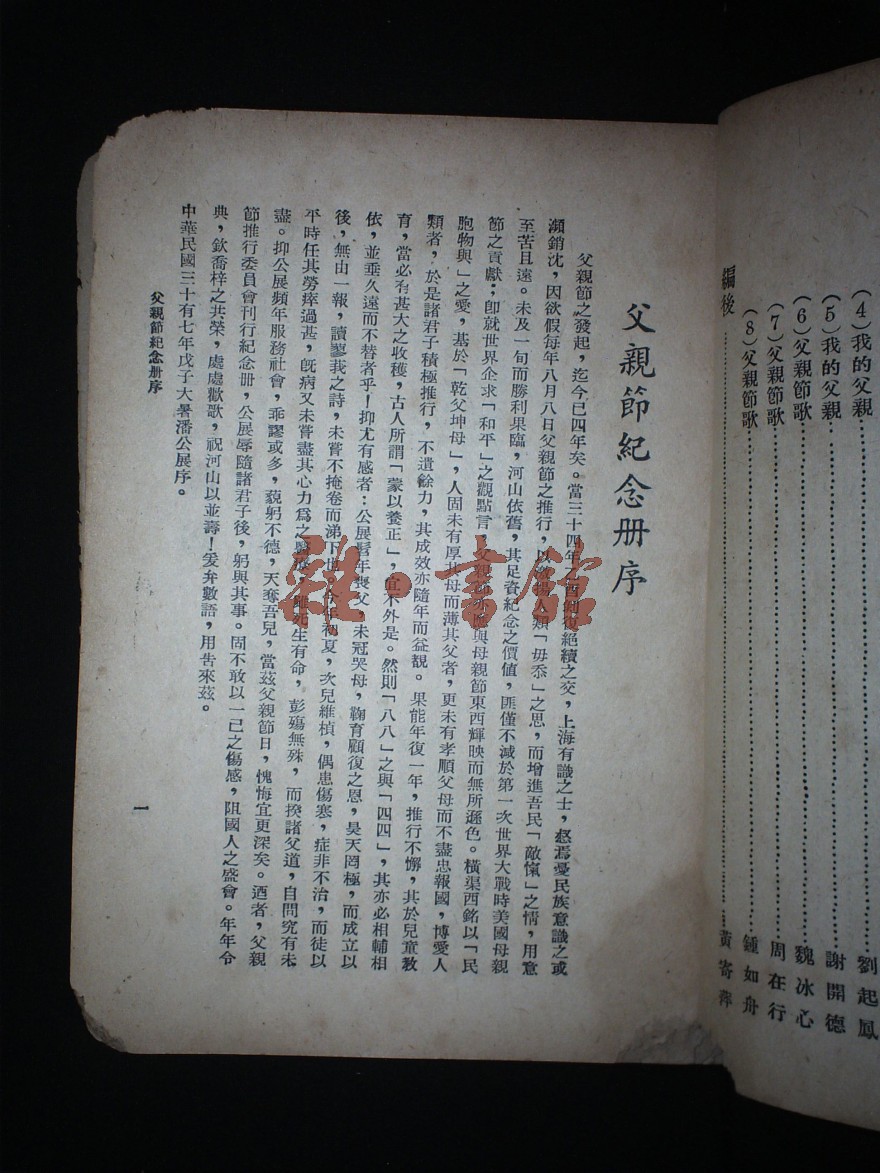 (4)我的父親……劉起鳳
(5)我的父親……謝開德
(6)父親節歌……魏冰心
(7)父親節歌……周在行
(8)父親節歌……鍾如舟
編後……黃寄萍
父親節紀念册序
父親節之發起，迄今已四年矣。當三十四年乙酉剝復絕續之交，上海有識之士，惄焉憂民族意識之或
瀕銷沈，因欲假每年八月八日父親節之推行，以激揚人類「毋忝」之思，而增進吾民「敵愾」之情，用意
至苦且遠。未及一旬而勝利果臨，河山依舊，其足資紀念之價值，匪僅不减於第一次世界大戰時美國母親
節之貢獻；卽就世界企求「和平」之觀點言，父親節亦應與母親節東西輝映而無所遜色。橫渠西銘以「民
胞物與」之愛，基於「乾父坤母」，人固未有厚其母而薄其父者，更未有孝順父母而不盡忠報國，博愛人
類者，於是諸君子積極推行，不遺餘力，其成效亦隨年而益覩。果能年復一年，推行不懈，其於兒童教
育，當必有甚大之收穫，古人所謂「蒙以養正」，宜不外是。然則「八八」之與「四四」，其亦必相輔相
依，並垂久遠而不替者乎！抑尤有感者：公展髫年喪父，未冠哭母，鞠育顧復之恩，昊天罔極，而成立以
後，無由一報，讀蓼莪之詩，未嘗不掩卷而涕下也。今年初夏，次兒維楨，偶患傷寒，症非不治，而徒以
平時任其勞瘁過甚，旣病又未嘗盡其心力爲之醫療，雖死生有命，彭殤無殊，而揆諸父道，自問究有未
盡。抑公展頻年服務社會，乖謬或多，藐躬不德，天奪吾兒，當茲父親節日，愧悔宜更深矣。迺者，父親
節推行委員會刊行紀念册，公展辱隨諸君子後，躬與其事。固不敢以一己之傷感，阻國人之盛會。年年令
典，欽喬梓之共榮，處處歡歌，祝河山以並壽！爰弁數語，用告來茲。
中華民國三十有七年戊子大暑潘公展序。
父親節紀念册序
一
雜書館